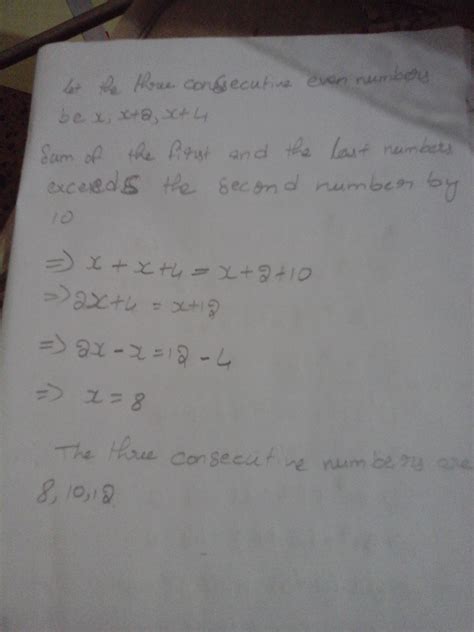 Let the three consecutive even numbers
be x, x+2, x+4
Sum of the first and the last numbers
exceeds the second number by
10
=> x + x+4 = x+2+10
=> 2x+4 = x+12
=> 2x-x=12-4
=> x = 8
The three consecutive numbers are
8, 10, 12